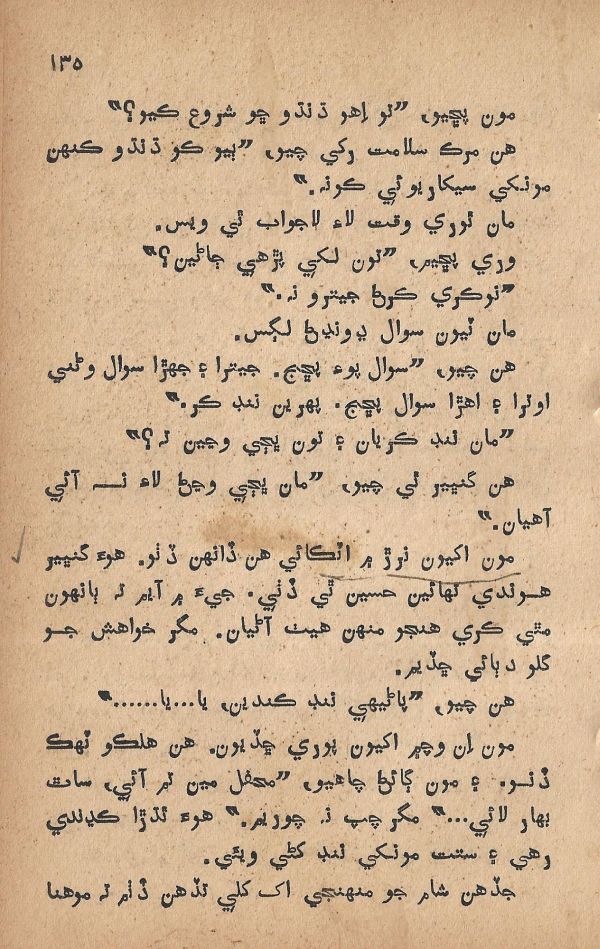 ١٣٥
مون پڇيو، ”تو اِهو ڌنڌو ڇو شروع ڪيو؟“
هن مرڪ سلامت رکي چيو، ”ٻيو ڪو ڌنڌو ڪنهن
مونکي سيکاريوئي ڪونہ.“
مان ٿوري وقت لاءِ لاجواب ٿي ويس.
وري پڇيم، ”تون لکي پڙهي ڄاڻين؟“
”نوڪري ڪرڻ جيترو نہ.“
مان ٽيون سوال ڍونڍڻ لڳس.
هن چيو، ”سوال پوءِ پڇج. جيترا ۽ جهڙا سوال وڻني
اوترا ۽ اهڙا سوال پڇج. پهرين ننڊ ڪر.“
”مان ننڊ ڪريان ۽ تون ڀڄي وڃين تہ؟“
هن گنڀير ٿي چيو، ”مان ڀڄي وڃڻ لاءِ نہ آئي
آهيان.“
مون اکيون نرڙ ۾ اٽڪائي هن ڏانهن ڏٺو. هوءَ گنڀير
هوندي نهائين حسين ٿي ڏٺي. جيءَ ۾ آيم تہ ٻانهون
مٿي ڪري هنجو منهن هيٺ آڻيان. مگر خواهش جو
گلو دٻائي ڇڏيم.
هن چيو، ”پاڻيهي ننڊ ڪندين، يا...يا......“
مون اِن وچ۾ اکيون ٻوري ڇڏيون. هن هلڪو ٽهڪ
ڏنو. ۽ مون ڳائڻ چاهيو، ”محفل مين تم آئي، ساٿ
بهار لائي...“ مگر چپ نہ چوريم. هوءَ ٿڌڙا ڪڍندي
رهي ۽ سنت مونکي ننڊ کڻي ويئي.
جڏهن شام جو منهنجي اک کلي تڏهن ڏٺم تہ موهنا